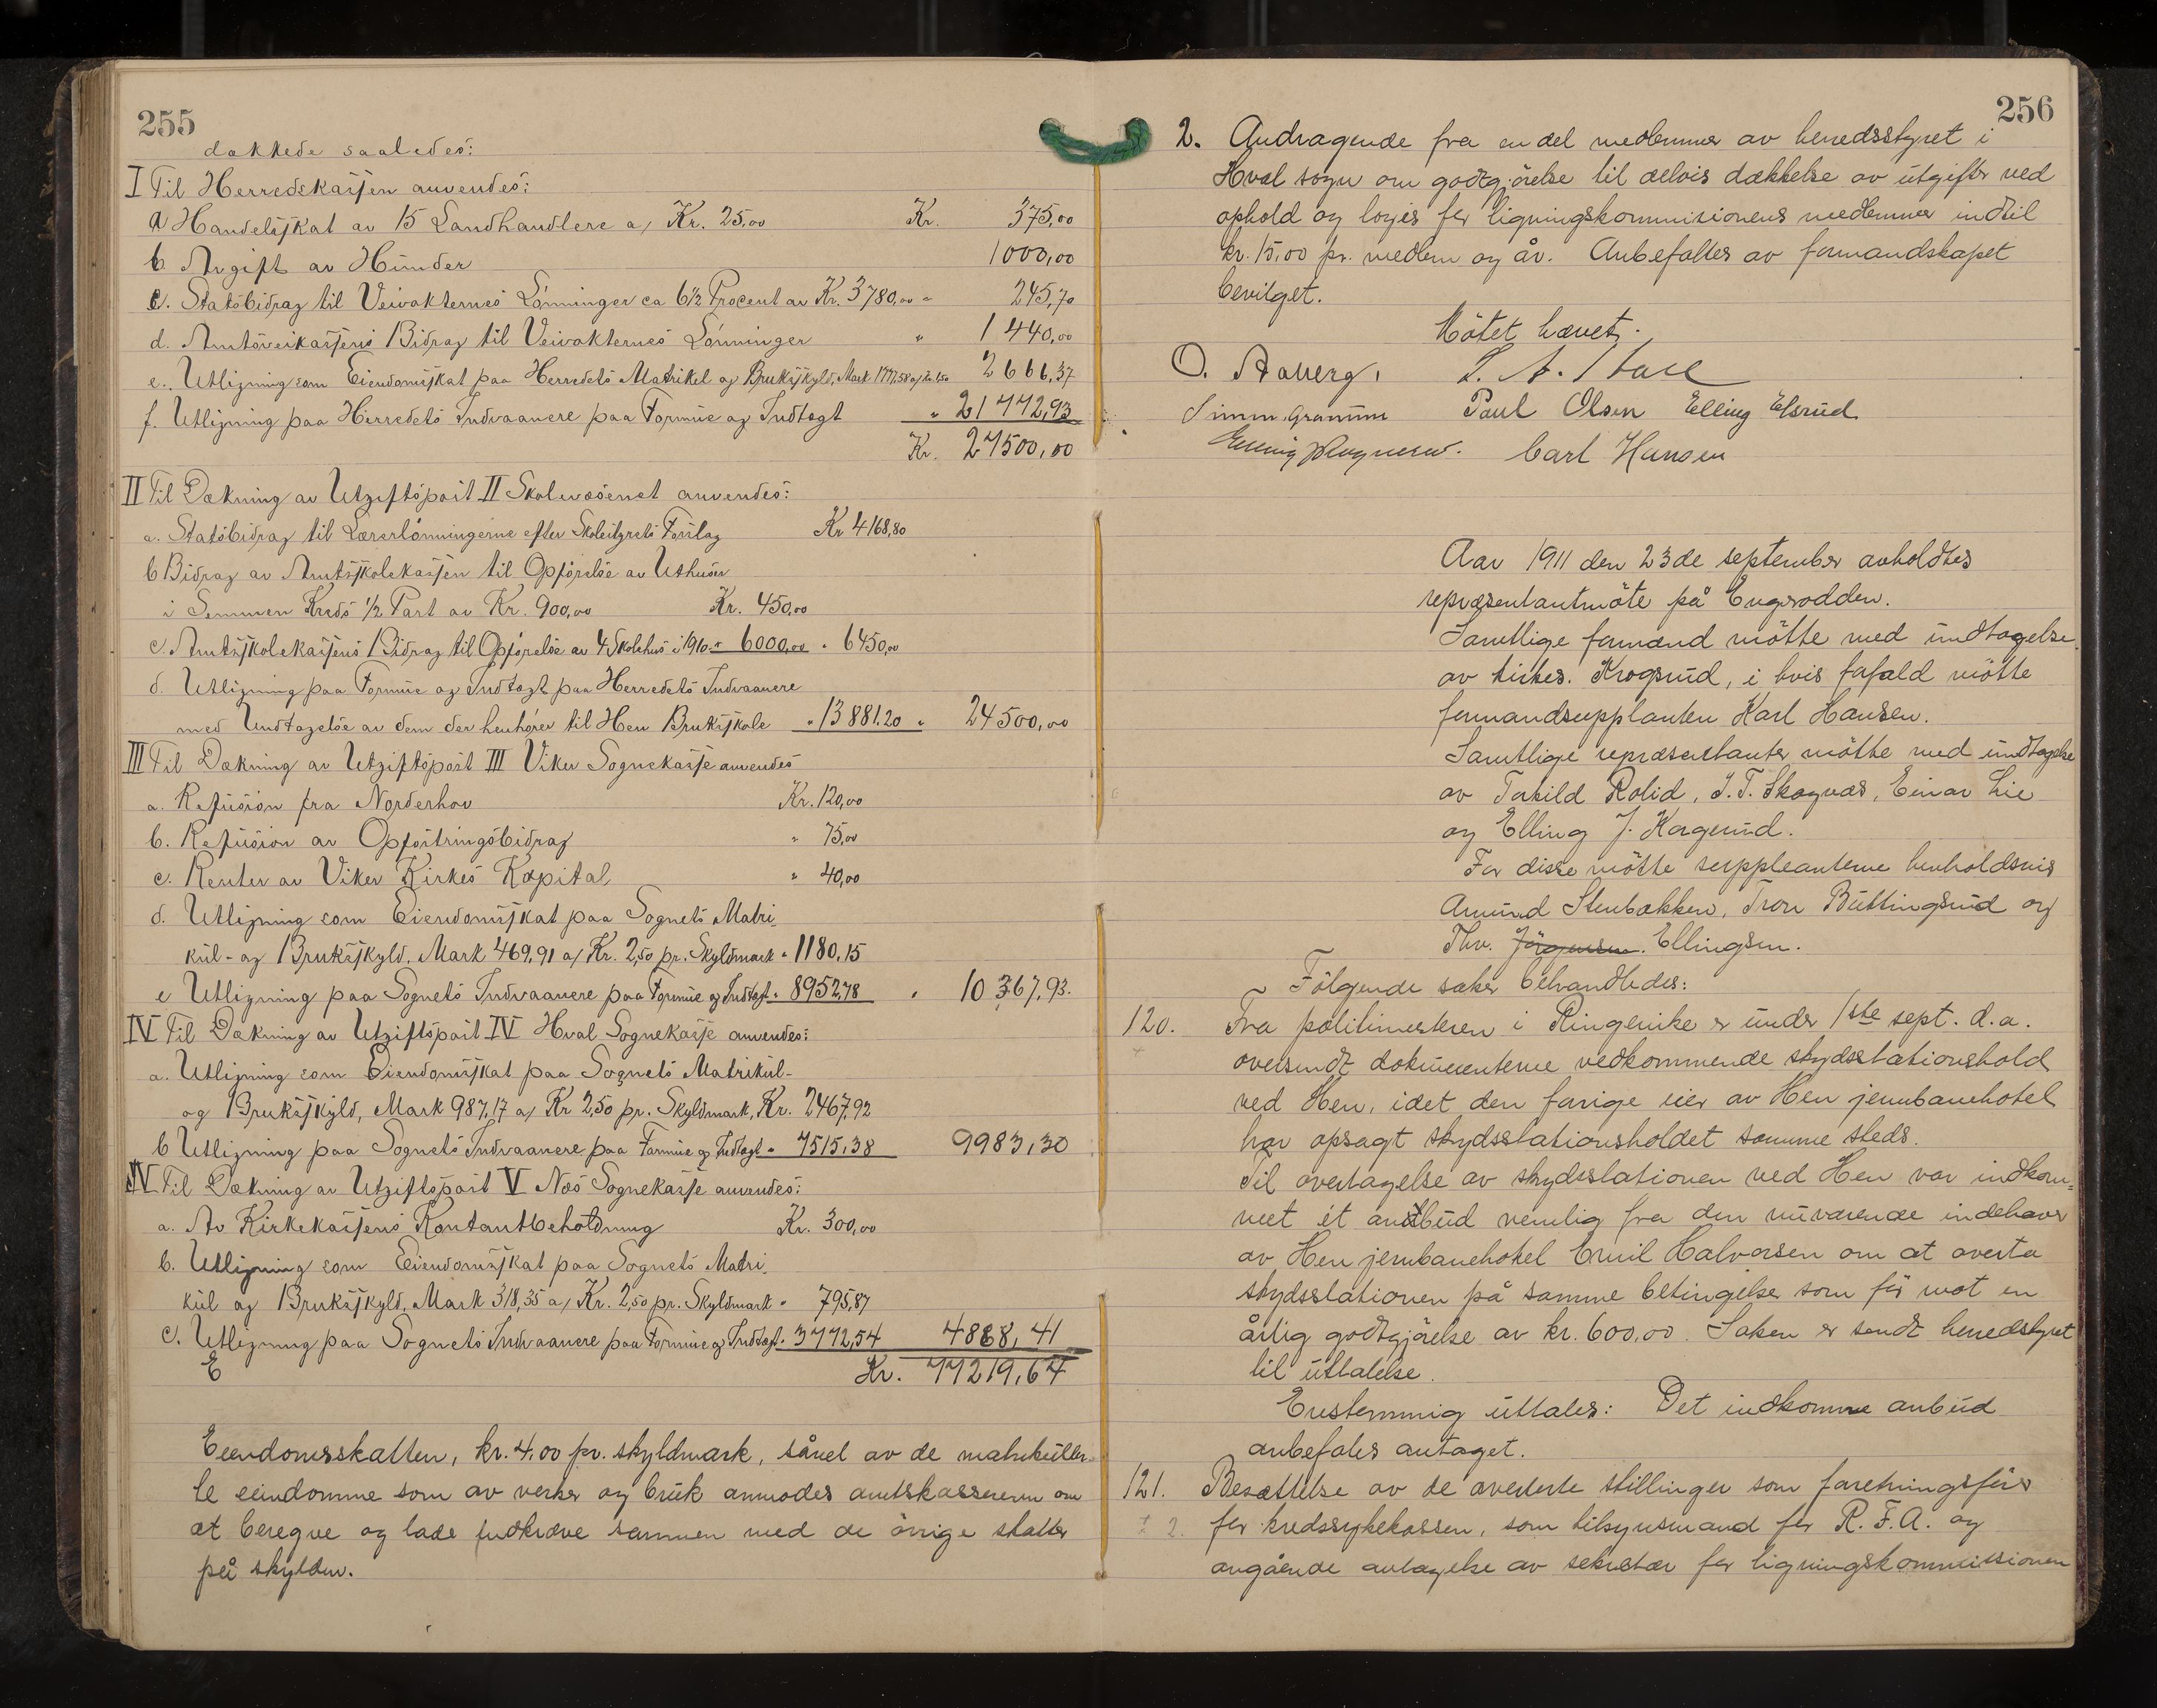 255
dækkede saaledes:
I Til Herredskassen anvendes:
a Handelsskat av 15 Landhandlere a/ Kr. 25,00 Kr. 375,00
b. Avgift av Hunder 1000,00
c. Statsbidrag til Veivokternes Lønninger ca 6½ Procent av Kr. 3780,00 " 245,70
d. Amtsveikassens Bidrag til Veivokternes Lønninger " 1440,00
e. Utligning som Eiendomsskat paa Herredets Matrikel og Bruksskyld, Mark 1777,58 a/ Kr. 1,50 2666,37
f. Utligning paa Herredets Indvaanere paa Formue og Indtægt " 21772,93
Kr. 27500,00
II Til Dækning av Utgiftspost II Skolevæsenet anvendes:
a. Statsbidrag til Lærerlønningerne efter Skolestyrets Forslag Kr 4168,80
b Bidrag av Amtsskolekassen til Opførelse av Uthuser
i Semmen Kreds ½ Part av Kr. 900,00 Kr. 450,00
c. Amtsskolekassens Bidrag til Opførelse av 4 Skolehus i 1910 " 6000,00 " 6450,00
d. Utligning paa Formue og Indtægt paa Herredets Indvaanere
med Undtagelse av dem der henhører til Hen Bruksskole " 13881.20 " 24500,00
III Til Dækning av Utgiftspost III Viker Sognekasse anvendes
a. Refusion fra Norderhov Kr. 120,00
b. Refusion av Opfostringsbidrag " 75,00
c. Renter av Viker Kirkes Kapital " 40,00
d. Utligning som Eiendomsskat paa Sognets Matri-
kul- og Bruksskyld, Mark 469,91 a/ Kr. 2,50 pr. Skyldmark " 1180,15
e Utligning paa Sognets Indvaanere paa Formue og Indtægt " 8952,78 " 10367,93.
IV Til Dækning av Utgiftspost IV Hval Sognekasse anvendes:
a. Utligning som Eiendomsskat paa Sognets Matrikul-
og Bruksskyld, Mark 987,17 a/ Kr 2,50 pr. Skyldmark, Kr. 2467,92
b Utligning paa Sognets Indvaanere paa Formue og Indtægt " 7515,38 9983,30
IV Til Dækning av Utgiftspost V Næs Sognekasse anvendes:
a. Av Kirkekassens Kontantbeholdning Kr. 300,00
b. Utligning som Eiendomsskat paa Sognets Matri-
kul og Bruksskyld, Mark 318,35 a/ Kr. 2,50 pr. Skyldmark " 795,87
c. Utligning paa Sognets Indvaanere paa Formue og Indtægt " 3772,54 4868,41
E Kr. 77219,64
Eiendomsskatten, kr. 4,00 pr. skyldmark, såvel av de matrikuller-
te eiendomme som av verker og bruk anmodes amtskassereren om
at beregne og lade indkræve sammen med de øvrige skatter
på skylden.
256
2. Andragende fra en del medlemmer av herredsstyret i
Hval sogn om godtgjørelse til delvis dækkelse av utgifter ved
ophold og logis for ligningskommisionens medlemmer indtil
kr. 15,00 pr. medlem og år. Anbefaltes av formandskapet
bevilget.
Mötet hævet.
O. Aaberg,
Simen Granum Paul Olsen Elling Elsrud
Carl Hansen
Aar 1911 den 23de september avholdtes
repræsentantmöte på Engerodden.
Samtlige formænd mötte med undtagelse
av Krogsrud, i hvis forfald mötte
formandssupplanten Karl Hansen.
Samtlige repræsentanter mötte med undtagelse
av Torkild Rolid, J. T. Skagnæs, Einar Lie
og Elling J. Hagerud.
For disse mötte suppleanterne henholdsvis
Amund Stenbækken, Tron Buttingsrud og
Thv. Jörgensen. Ellingsen.
Fölgende saker behandledes:
120. Fra politimesteren i Ringerike er under 1ste sept. d.a.
oversendt dokumenterne vedkommende skydsstationshold
ved Hen, idet den forrige eier av Hen jernbanehotel
har opsagt skydsstationsholdet samme steds.
Til overtagelse av skydsstationen ved Hen var indkom-
met ét anbud nemlig fra den nuværende indehaver
av Hen jernbanehotel Emil Halvorsen om at overta
skydsstationen på samme betingelser som för mot en
årlig godtgjörelse av kr. 600,00. Saken er sendt herredstyret
til uttalelse.
Enstemmig uttales: Det indkomne anbud
anbefales antaget.
121. Besættelse av de averterte stillinger som forretningsförer
for kredssykekassen, som tilsynsmand for R. F. A. og
angående antagelse av sekretær for ligningskommissionen